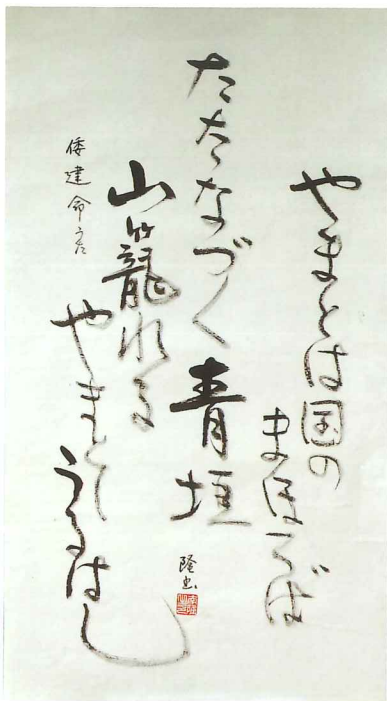 やまとは国の
まほろば
たたなづく青垣
山籠れる
やまとし
うるはし
倭建命うた
隆書